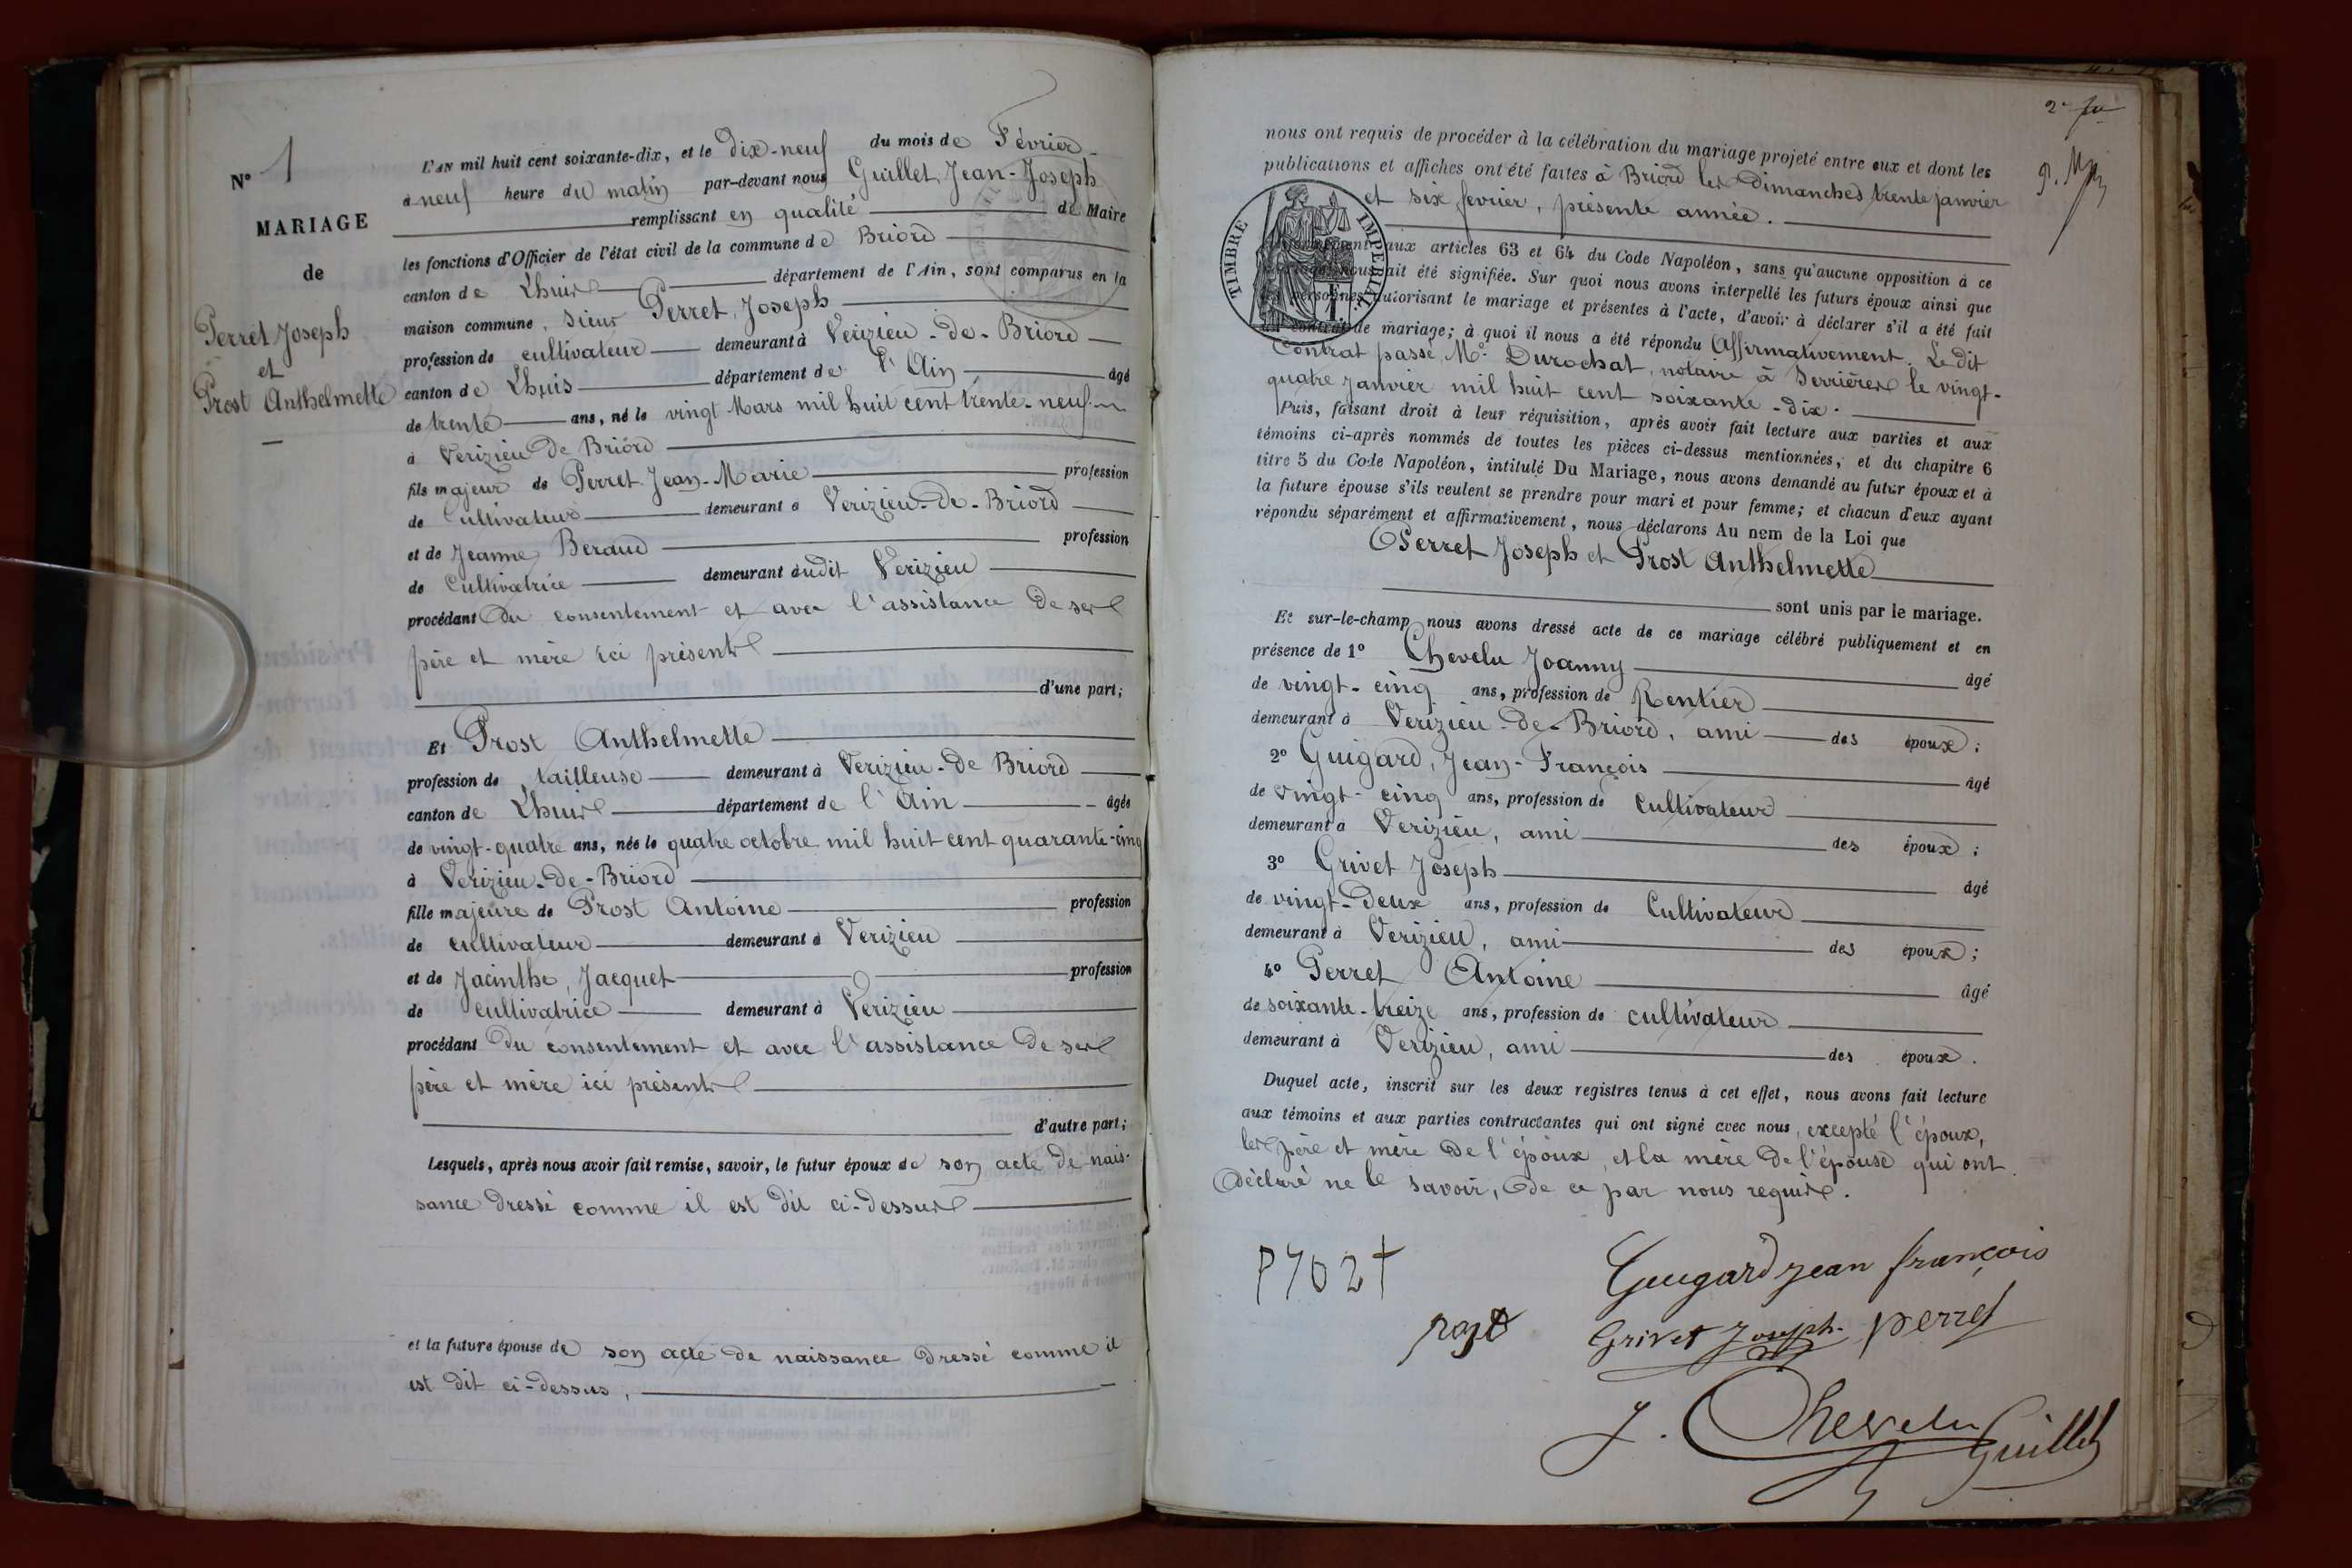 N° 1
MARIAGE
de
Perret Joseph
et
Prost Anthelmette
L'AN mil huit cent soixante-dix, et le dix-neuf du mois de Février
à neuf heure du matin par-devant nous Guillet, Jean-Joseph
remplissant en qualité de Maire
les fonctions d'Officier de l'état civil de la commune de Briord
canton de Lhuis département de l'Ain, sont comparus en la
maison commune, sieur Perret, Joseph
profession de cultivateur demeurant à Verizieu-de-Briord
canton de Lhuis département de l'Ain âgé
de trente ans, né le vingt Mars mil huit cent trente-neuf
à Verizieu de Briord
fils majeur de Perret Jean-Marie profession
de Cultivateur demeurant à Verizieu-de-Briord
et de Jeanne Beraud profession
de Cultivatrice demeurant audit Verizieu
procédant du consentement et avec l'assistance de ses
père et mère ici présents
d'une part;
Et Prost Anthelmette
profession de tailleuse demeurant à Verizieu-de Briord
canton de Lhuis département de l'Ain âgée
de vingt-quatre ans, née le quatre octobre mil huit cent quarante-cinq
à Verizieu-de-Briord
fille majeure de Prost Antoine profession
de cultivateur demeurant à Verizieu
et de Jacinthe, Jacquet profession
de cultivatrice demeurant à Verizieu
procédant du consentement et avec l'assistance de ses
père et mère ici présents
d'autre part;
Lesquels, après nous avoir fait remise, savoir, le futur époux de son acte de nais-
sance dressé comme il est dit ci-dessus
et la future épouse de son acte de naissance dressé comme il
est dit ci-dessus,
nous ont requis de procéder à la célébration du mariage projeté entre eux et dont les
publications et affiches ont été faites à Briord les dimanches trente janvier
et six fevrier, présente année.
TIMBRE IMPERIAL
aux articles 63 et 64 du Code Napoléon, sans qu'aucune opposition à ce
nous ait été signifiée. Sur quoi nous avons interpellé les futurs époux ainsi que
personnes autorisant le mariage et présentes à l'acte, d'avoir à déclarer s'il a été fait
contrat de mariage; à quoi il nous a été répondu Affirmativement. Le dit
Contrat passé, Me Durochat, notaire à Serrières le vingt-
quatre janvier mil huit cent soixante-dix.
Puis, faisant droit à leur réquisition, après avoir fait lecture aux parties et aux
témoins ci-après nommés de toutes les pièces ci-dessus mentionnées, et du chapitre 6
titre 5 du Code Napoléon, intitulé Du Mariage, nous avons demandé au futur époux et à
la future épouse s'ils veulent se prendre pour mari et pour femme; et chacun d'eux ayant
répondu séparément et affirmativement, nous déclarons Au nom de la Loi que
Perret Joseph et Prost Anthelmette
sont unis par le mariage.
Et sur-le-champ nous avons dressé acte de ce mariage célébré publiquement et en
présence de 1° Chevelu Joanny âgé
de vingt-cinq ans, profession de Rentier
demeurant à Verizieu-de-Briord, ami des époux;
2° Guigard, Jean-François âgé
de vingt-cinq ans, profession de Cultivateur
demeurant à Verizieu, ami des époux;
3° Grivet Joseph âgé
de vingt-deux ans, profession de Cultivateur
demeurant à Verizieu, ami des époux;
4° Perret Antoine âgé
de soixante-treize ans, profession de cultivateur
demeurant à Verizieu, ami des époux.
Duquel acte, inscrit sur les deux registres tenus à cet effet, nous avons fait lecture
aux témoins et aux parties contractantes qui ont signé avec nous, excepté l'époux,
les père et mère de l'époux, et la mère de l'épouse qui ont
déclaré ne le savoir, de ce par nous requis.
Guigard jean françois
Grivet Joseph perret
J. Chevelu
Guillet